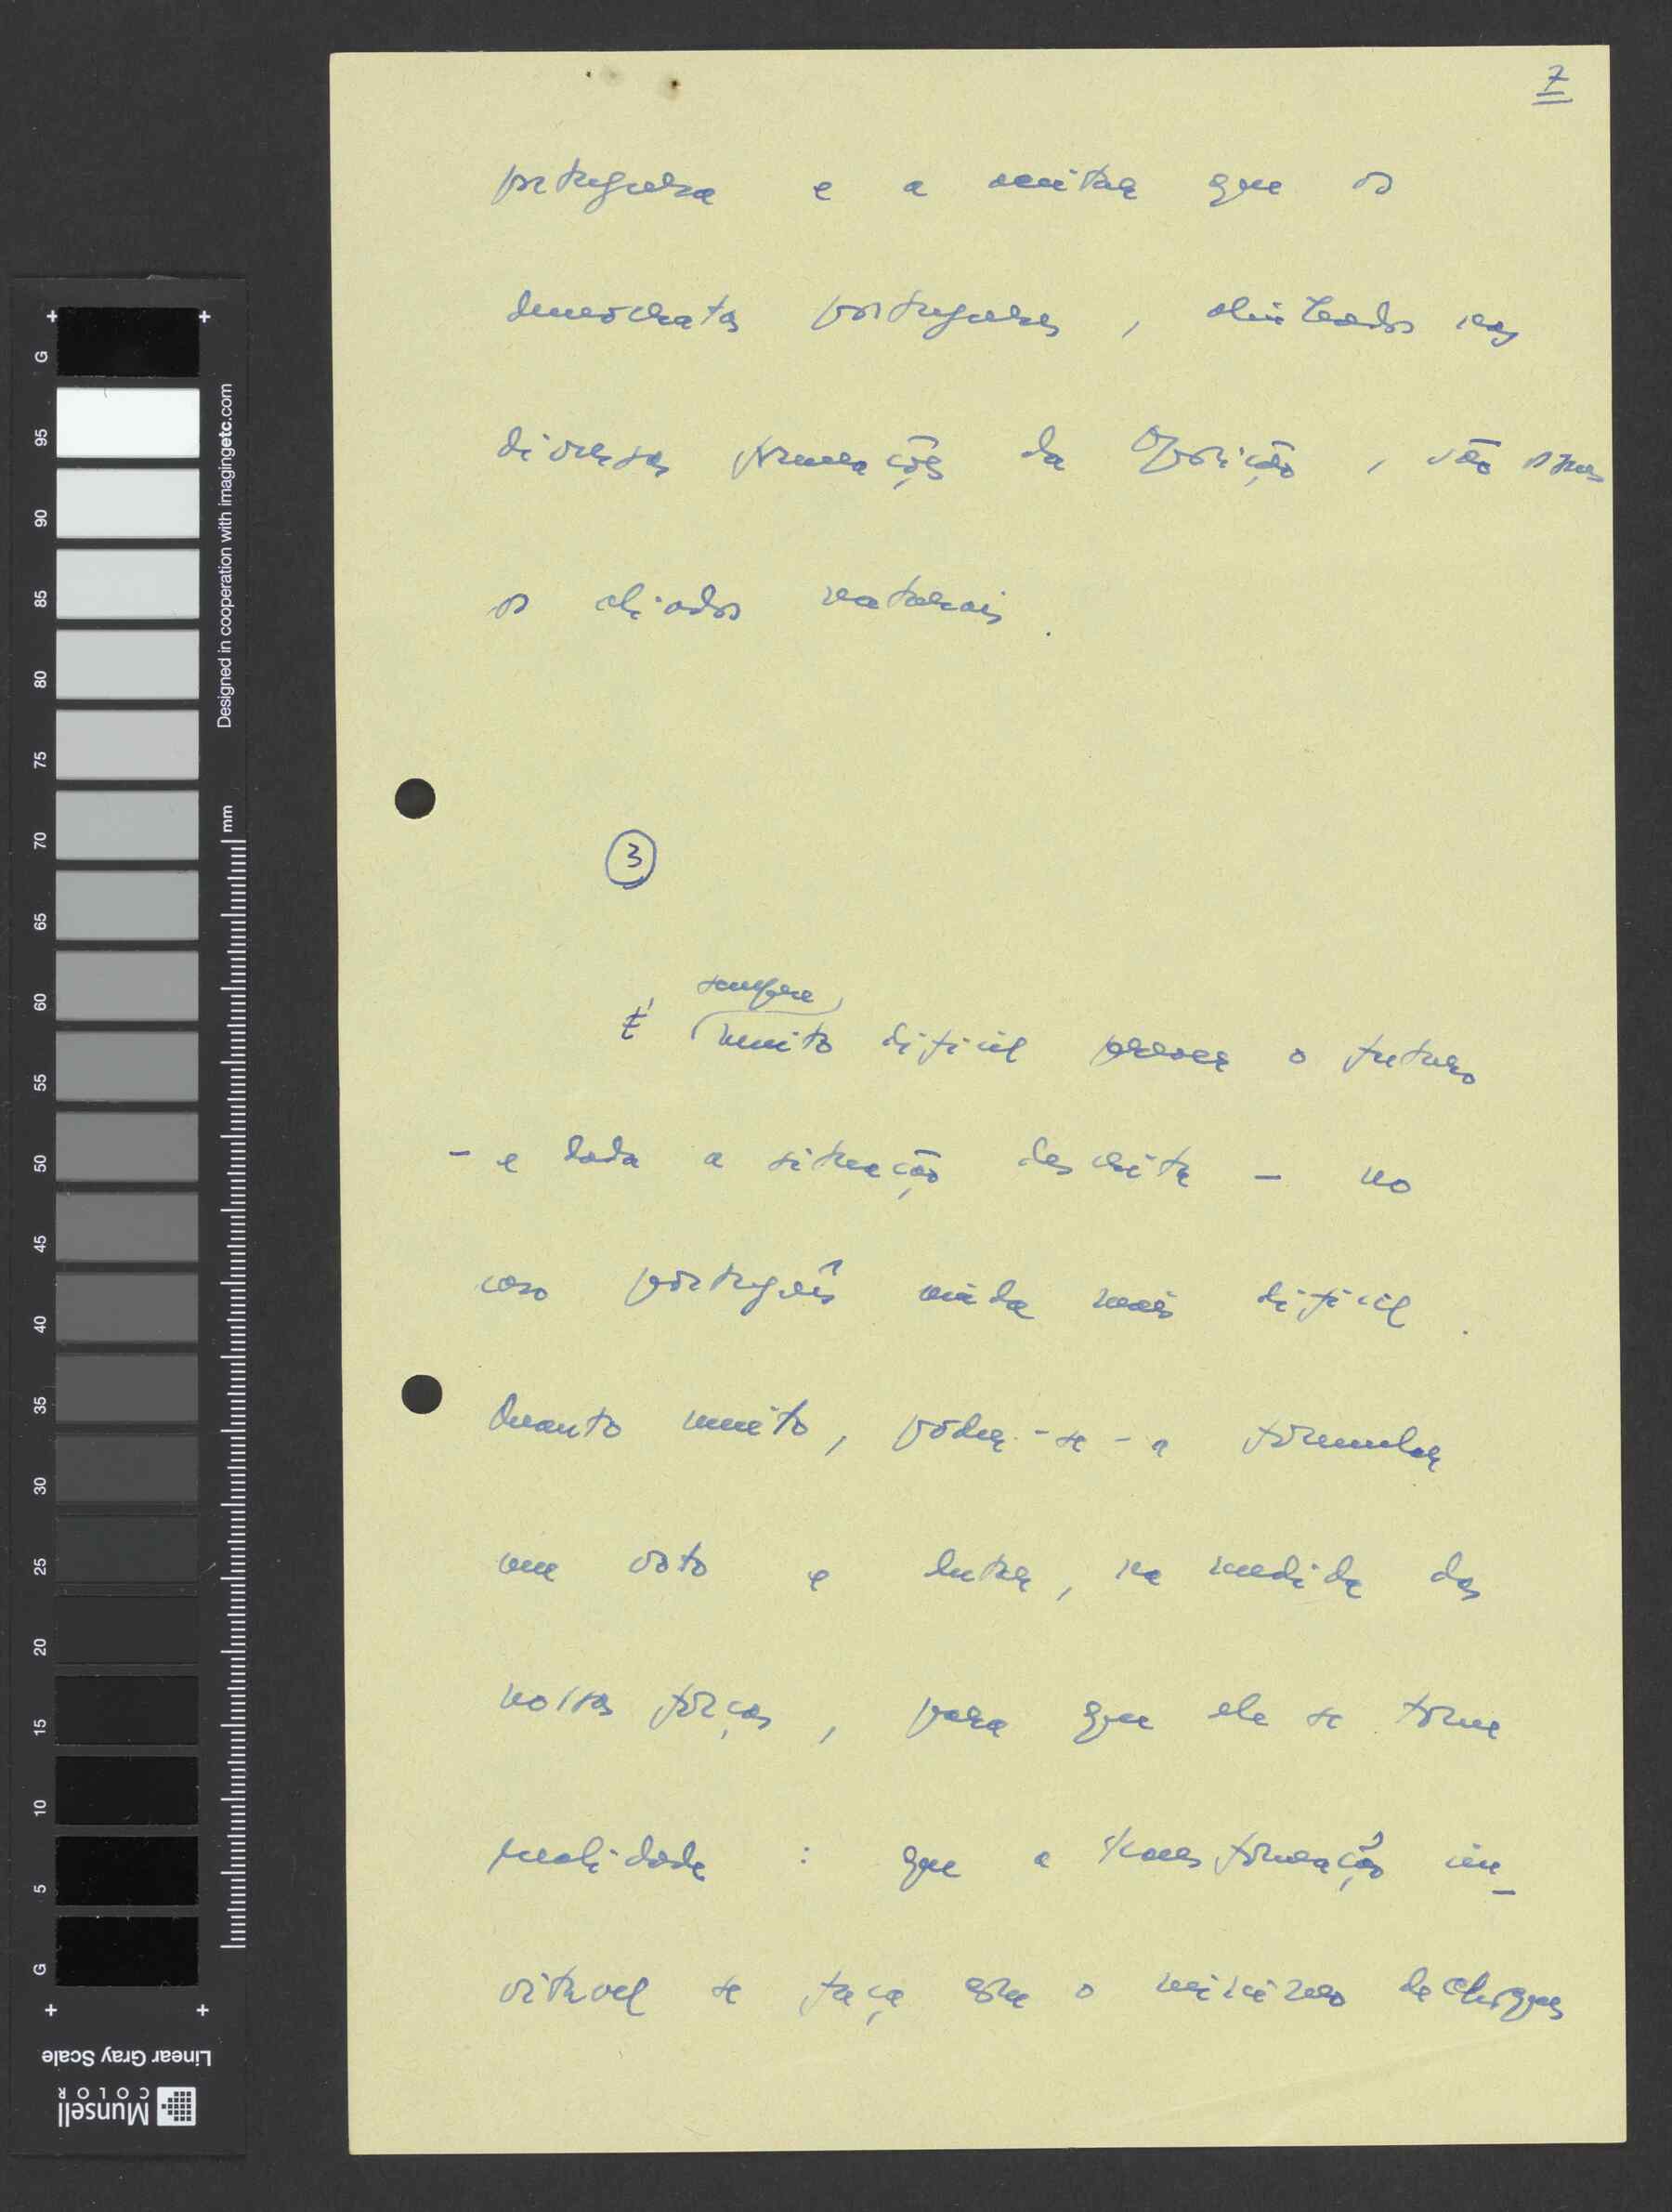 7
portuguesa e a aceitar que os
democratas portugueses, alinhados nas
diversas formações da Oposição, são os seus
os aliados naturais.
3
sempre
É muito difícil prever o futuro
- e dada a situação descrita - no
caso português ainda mais difícil.
Quanto muito, poder-se-á formular
um voto e lutar, na medida das
nossas forças, para que ele se torne
realidade: que a transformação ine-
vitável se faça com o mínimo de choques
G
95
90
85
80
75
70
65
60
55
50
45
40
35
30
25
20
15
10
5
G
Designed in cooperation with imagingetc.com
mm
Linear Gray Scale
Munsell
COLOR